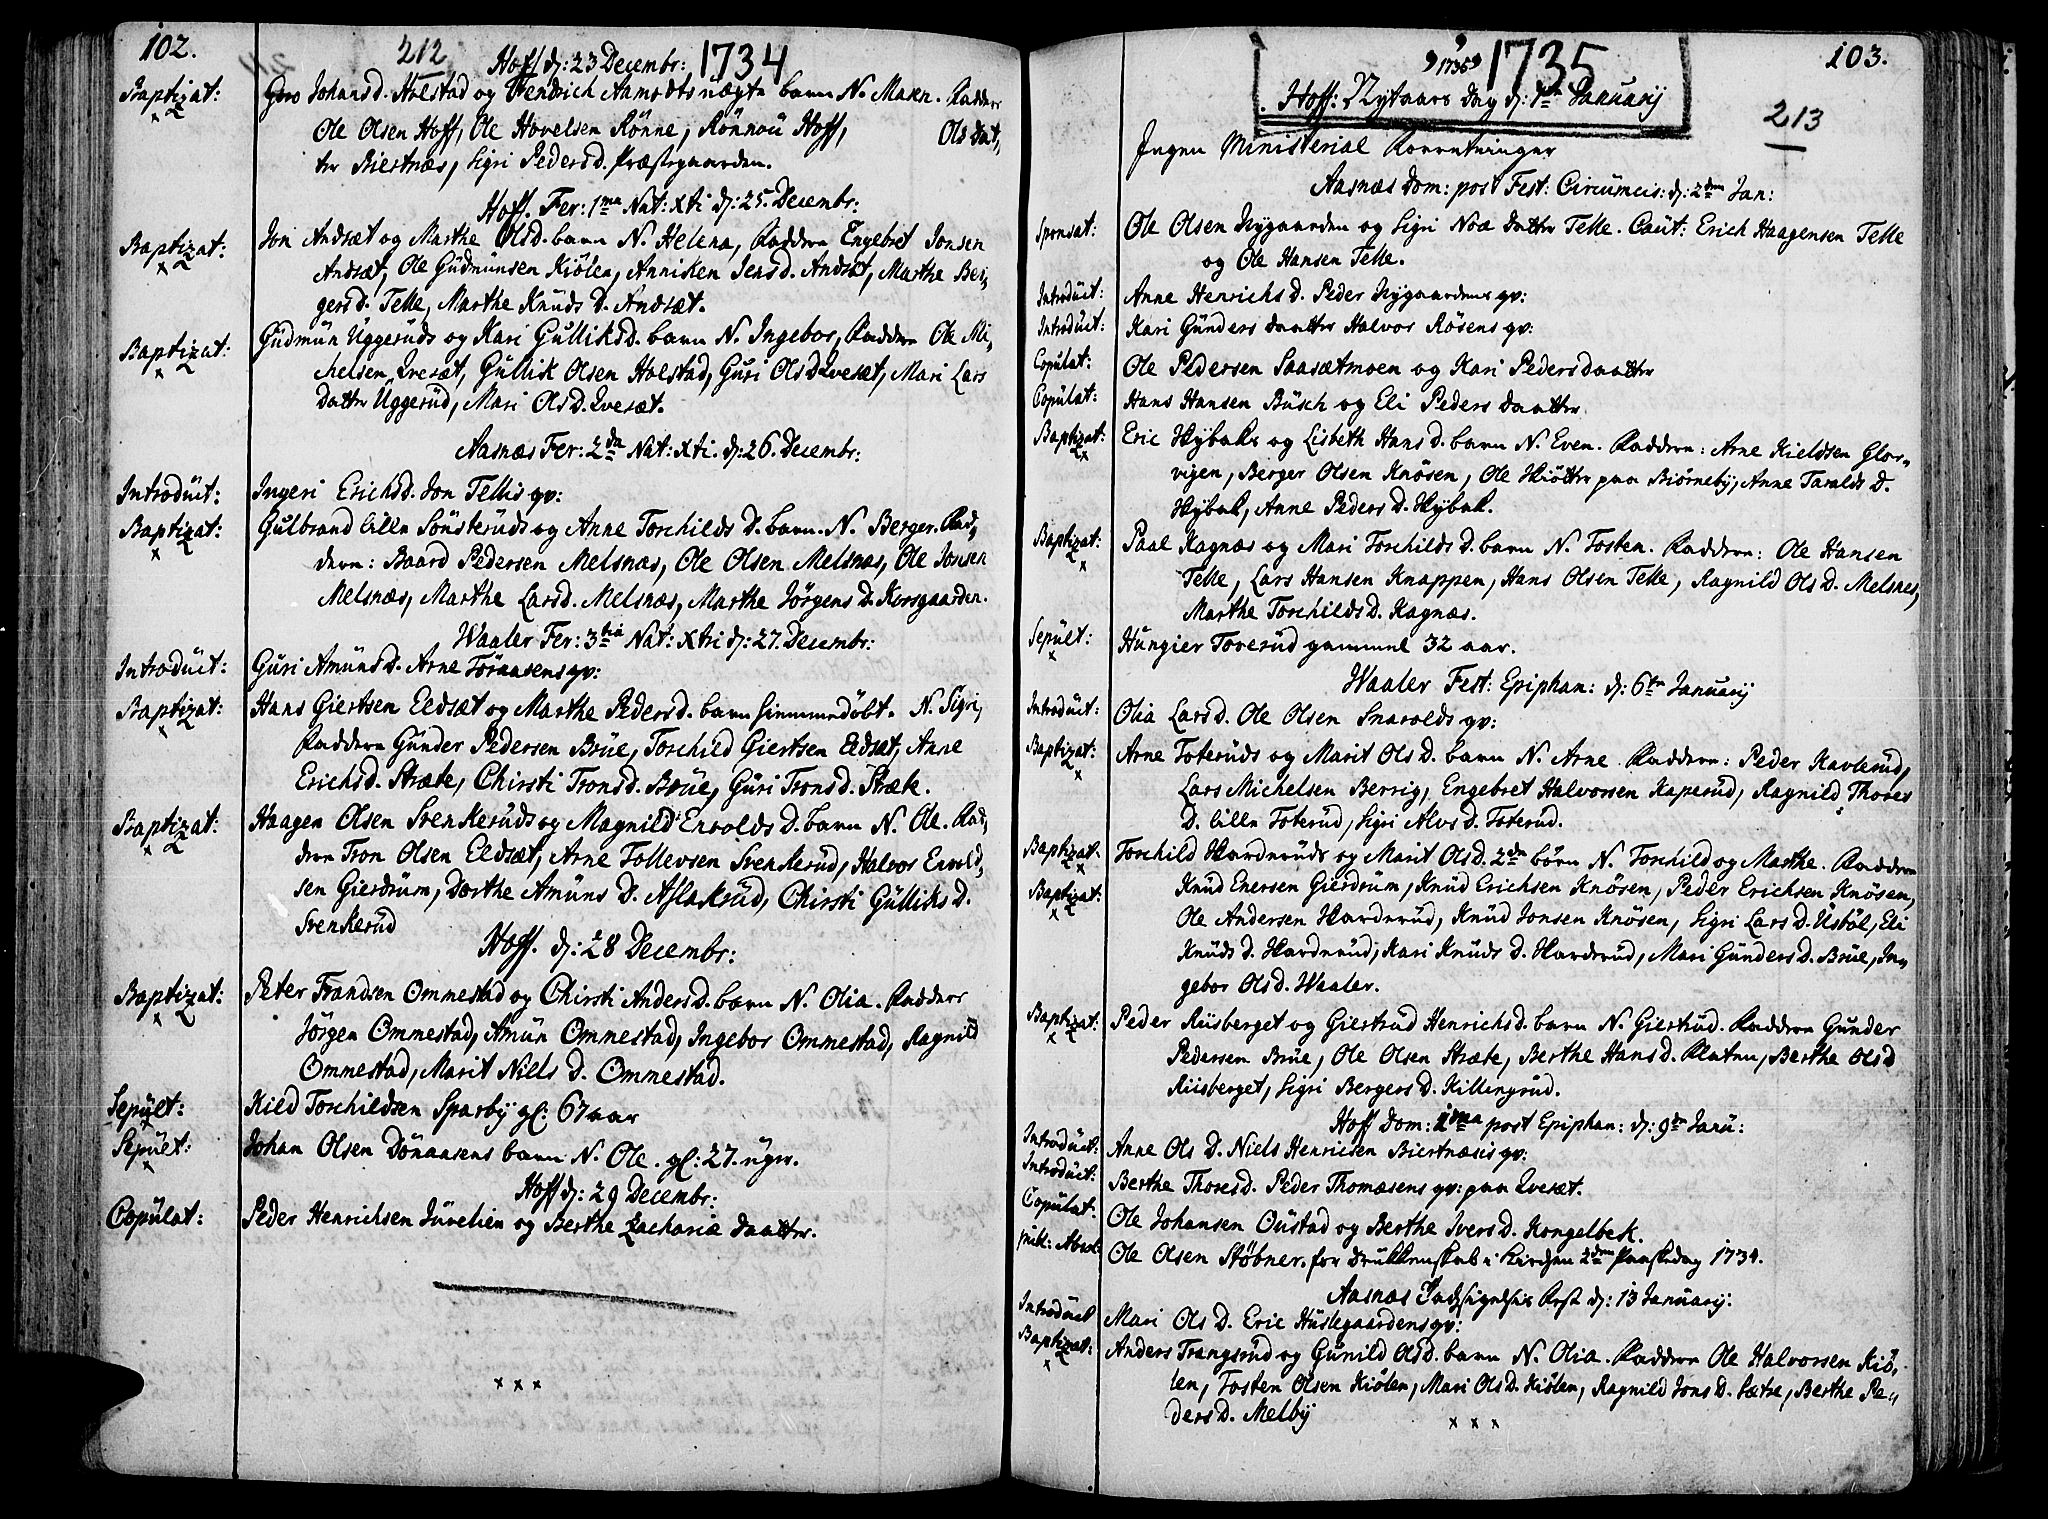 102.
212
Hoff d: 23 Decembr: 1734
Baptizat: Goro Johansd. Holstad og Hendrich Aamodts uægte barn N. Maren. Faddere
Ole Olsen Hoff, Ole Hovelsen Rönne, Rönnou Hoff, Ols Dat,
ter Biertnæs, Sigri Pedersd. Præstegaarden.
Hoff. Fer: 1ma Nat: Xti d: 25 Decembr:
Baptizat: Jon Andsæt og Marthe Olsd. barn N. Helena, Faddere Engebret Jonsen
Andsæt, Ole Gudmunsen Kiölen, Anniken Jensd. Andsæt, Marthe Ber,
gersd. Telle, Marthe Knuds D. Andsæt.
Baptizat: Gudmun Uggeruds og Kari Gulliksd. barn N. Ingebor, Faddere Ole Mi,
chelsen Qvesæt, Gullik Olsen Holstad, Guri Ols D. Qvesæt, Mari Lars
Datter Uggerud, Mari Ols D. Qvesæt.
Aasnæs Fer: 2da Nat: Xti. d: 26. Decembr:
Introduct: Ingeri Erichsd. Jon Tellis qv:
Baptizat: Gulbrand lille Sönsteruds og Anne Torchilds D. barn. N. Berger. Fad,
dere: Baard Pedersen Melsnæs, Ole Olsen Melsnæs, Ole Jonsen
Melsnæs, Marthe Larsd. Melsnæs, Marthe Jörgens D. Korsgaarden.
Waaler Fer: 3tia Nat: Xtri d: 27. Decembr:
Introduct: Guri Amunsd. Arne Töraasens qv:
Baptizat: Hans Giertsen Eldsæt og Marthe Pedersd. barn hiemmedöbt. N. Sigri,
Faddere Gunder Pedersen Brue, Torchild Giertsen Eldsæt, Anne
Erichsd. Stræte, Chirsti Tronsd. Brue, Guri Tronsd. Stræte.
Baptizat: Haagen Olsen Svenkeruds og Magnild Envolds D. barn N. Ole. Fad,
dere Tron Olsen Eldsæt, Arne Tollevsen Svenkerud, Halvor Envold,
sen Gierdrum, Dorthe Amuns D. Aslakrud, Chirsti Gulliks D.
Svenkerud
Hoff. d: 28 Decembr:
Baptizat: Peter Frandsen Ommestad og Chirsti Anders D. barn N. Olia. Faddere
Jörgen Ommestad, Amun Ommestad, Ingebor Ommestad, Ragnild
Ommestad, Marit Niels D. Ommestad.
Sepult: Kield Torchildsen Sparby gl: 67 aar
Sepult: Johan Olsen Dönaasens barn N. Ole. gl: 27. uger.
Hoff d: 29 Decembr:
Copulat: Peder Henrichsen Juvelien og Berthe Zachariæ Daatter.
x x x
103.
1735 1735
Hoff: Nytaars Dag d: 1ste Januarij
213
Ingen Ministerial Forretninger
Aasnæs Dom: post Fest: Circumcis: d: 2den Jan:
Sponsat: Ole Olsen Nygaarden og Sigri Noa Datter Telle. Caut: Erich Haagensen Telle
og Ole Hansen Telle.
Introduct: Anne Henrichs D. Peder Nygaardens qv:
Introduct: Kari Gunders Daatter Halvor Rösens qv:
Copulat: Ole Pedersen Saasætmoen og Kari Peders daatter
Copulat: Hans Hansen Busch og Eli Peders daatter
Baptizat: Eric Hybaks og Lisbeth Hans D. barn N. Even. Faddere: Arne Kieldsen Glor,
vigen, Berger Olsen Knösen, Ole Skiötter paa Biörneby, Anne Taralds D.
Hybak, Anne Peders D. Hybak.
Baptizat: Paal Kagnæs og Mari Torchilds D. barn N. Tosten. Faddere: Ole Hansen
Telle, Lars Hansen Knappen, Hans Olsen Telle, Ragnild Ols D. Melsnes,
Marthe Torchilds D. Kagnæs.
Sepult: Hungier Toverud gammel 32 aar.
Waaler Fest: Epiphan: d: 6te Januarij
Introduct: Olia Lars D. Ole Olsen Snarolds qv:
Baptizat: Arne Toteruds og Marit Ols D. barn N. Arne. Faddere: Peder Kavlerud,
Lars Michelsen Berrig, Engebret Halvorsen Kaperud, Ragnild Thores
D. lille Toterud, Sigri Alvs D. Toterud.
Baptizat: Torchild Harderuds og Marit Olsd. 2de börn N. Torchild og Marthe. Faddere
Baptizat: Knud Enersen Gierdrum, Knud Erichsen Knösen, Peder Erichsen Knösen,
Ole Andersen Harderud, Knud Jonsen Knösen, Sigri Lars D. Usböl, Eli
Knuds D. Harderud, Kari Knuds D. Harderud, Mari Gunders D. Brue, In,
gebor Ols D. Waaler.
Baptizat: Peder Riisberget og Giertrud Henrichsd. barn N. Giertrud. Faddere Gunder
Pedersen Brue, Ole Olsen Stræte, Berthe Hans D. Flaten, Berthe Ols D
Riisberget, Sigri Bergers D. Killingrud.
Hoff Dom: 1ma post Epiphan: d: 9de Janu:
Introduct: Anne Ols D. Niels Henrichsen Biertnæsis qv:
Introduct: Berthe Thoresd. Peder Thomæsens qv: paa Qvesæt.
Copulat: Ole Johansen Oustad og Berthe Ivers D. Kongelbek.
publ: Absol: Ole Olsen Stöbner. for Drukkenskab i Kirchen 2den Paaskedag 1734.
Aasnæs Indsignelsis Fest d: 13 Januarij:
Introduct Mari Ols D. Eric Huslegaardens qv:
Baptizat: Anders Trangsrud og Gunild Olsd. barn N. Olia. Faddere Ole Halvorsen Kiö,
len, Tosten Olsen Kiölen, Mari Ols D. Kiölen, Ragnild Jons D. Sætre, Berthe Pe,
ders D. Melby
x x x